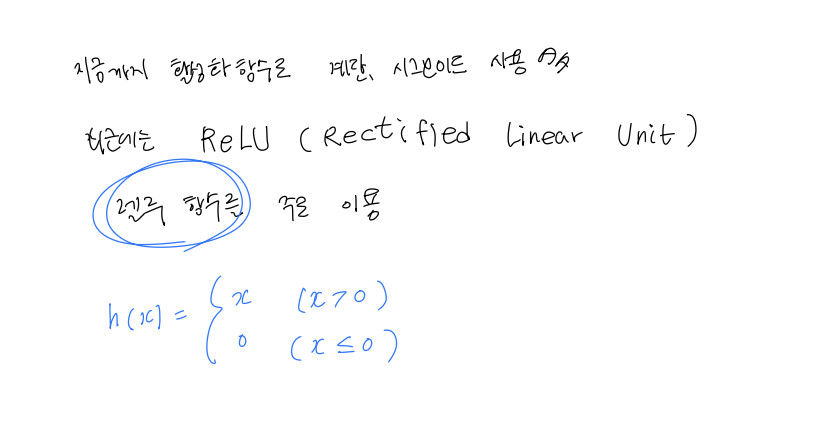 지금까지 활성화 함수로 계단, 시그모이드 사용
최근에는 ReLU (Rectified Linear Unit)
렐루 함수를 주로 이용
h(x) = { x (x > 0)
0 (x ≤ 0)